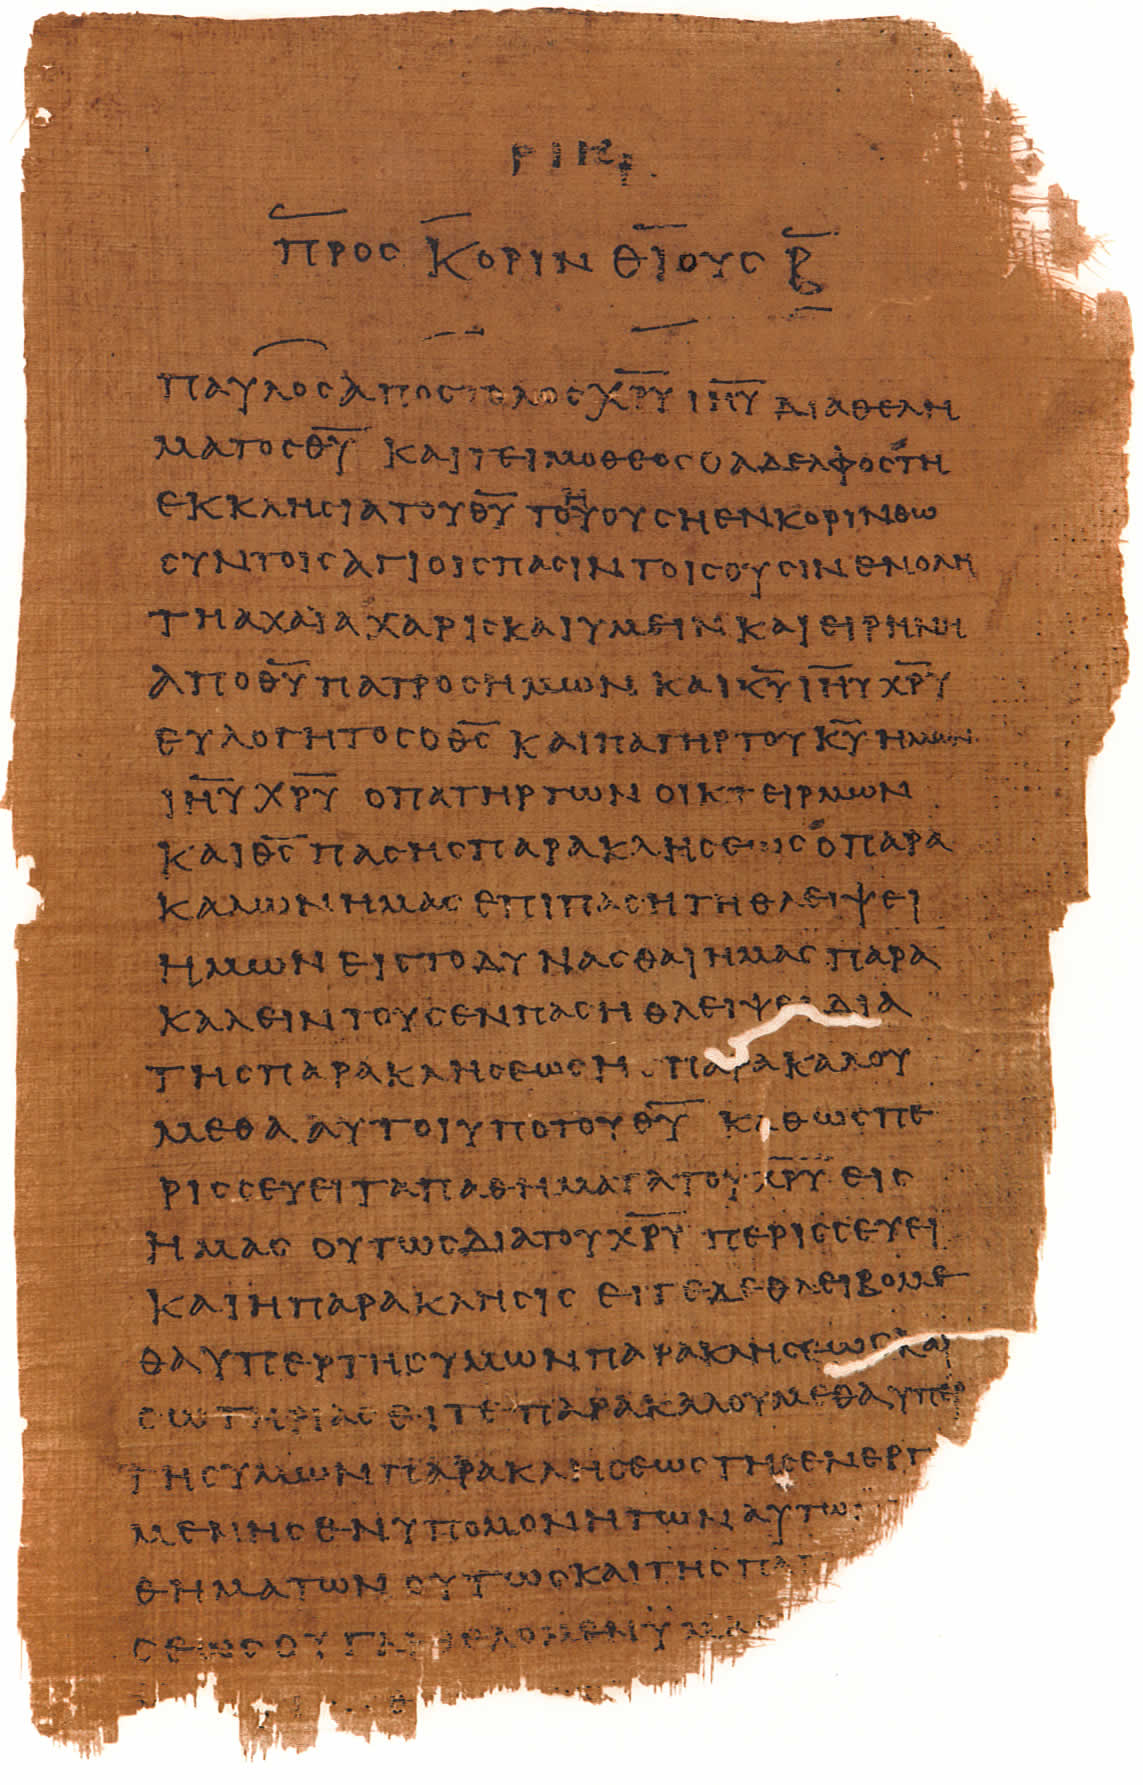 ΡΙΗ
ΠΡΟС ΚΟΡΙΝΘΙΟΥС Β
ΠΑΥΛΟСΑΠΟСΤΟΛΟСΧ̅Ρ̅Υ̅ Ι̅Η̅Υ̅ ΔΙΑΘΕΛΗ
ΜΑΤΟСΘ̅Υ̅ ΚΑΙΤΕΙΜΟΘΕΟСΟΑΔΕΛΦΟСΤΗ
ΕΚΚΛΗСΙΑΤΟΥΘ̅Υ̅ ΤΟΥΟΥСΗΕΝΚΟΡΙΝΘΩ
СΥΝΤΟΙСΑΓΙΟΙСΠΑСΙΝΤΟΙСΟΥСΙΝΕΝΟΛΗ
ΤΗΑΧΑΪΑΧΑΡΙСΚΑΙΥΜΕΙΝΚΑΙΕΙΡΗΝΗ
ΑΠΟΘ̅Υ̅ΠΑΤΡΟСΗΜΩΝ ΚΑΙΚ̅Υ̅Ι̅Η̅Υ̅Χ̅Ρ̅Υ̅
ΕΥΛΟΓΗΤΟСΟΘ̅С̅ ΚΑΙΠΑΤΗΡΤΟΥΚ̅Υ̅ΗΜΩΝ
Ι̅Η̅Υ̅ Χ̅Ρ̅Υ̅ ΟΠΑΤΗΡΤΩΝΟΙΚΤΕΙΡΜΩΝ
ΚΑΙΘ̅С̅ΠΑСΗСΠΑΡΑΚΛΗСΕΩСΟΠΑΡΑ
ΚΑΛΩΝΗΜΑСΕΠΙΠΑСΗΤΗΘΛΕΙΨΕΙ
ΗΜΩΝΕΙСΤΟΔΥΝΑСΘΑΙΗΜΑСΠΑΡΑ
ΚΑΛΕΙΝΤΟΥСΕΝΠΑСΗΘΛΕΙΨΕΙΔΙΑ
ΤΗСΠΑΡΑΚΛΗСΕΩСΗ ΠΑΡΑΚΑΛΟΥ
ΜΕΘΑΑΥΤΟΙΥΠΟΤΟΥΘ̅Υ̅ ΚΑΘΩСΠΕ
ΡΙССΕΥΕΙΤΑΠΑΘΗΜΑΤΑΤΟΥΧ̅Ρ̅Υ̅ΕΙС
ΗΜΑС ΟΥΤΩСΔΙΑΤΟΥΧ̅Ρ̅Υ̅ ΠΕΡΙССΕΥΕΙ
ΚΑΙΗΠΑΡΑΚΛΗСΙС ΕΙΤΕΔΕΘΛΕΙΒΟΜΕ
ΘΑΥΠΕΡΤΗСΥΜΩΝΠΑΡΑΚΛΗСΕΩСΚΑΙ
СΩΤΗΡΙΑСΕΙΤΕΠΑΡΑΚΑΛΟΥΜΕΘΑΥΠΕΡ
ΤΗСΥΜΩΝΠΑΡΑΚΛΗСΕΩСΤΗСΕΝΕΡΓ
ΜΕΝΗСΕΝΥΠΟΜΟΝΗΤΩΝΑΥΤΩ
ΘΗΜΑΤΩΝ ΟΥΤΩСΚΑΙΤΗСΠΑ
СΕΩСΟΥΓΑΡΘΕΛΟΜΕΝΫΜΑС